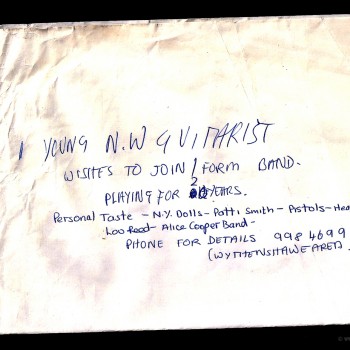 YOUNG N.W GUITARIST
WISHES TO JOIN / FORM BAND.
PLAYING FOR 2 YEARS.
Personal Taste – N.Y. Dolls – Patti Smith – Pistols – Hea
Loo Reed – Alice Cooper Band –
PHONE FOR DETAILS 998 4699
(WYTHENSHAWE AREA)